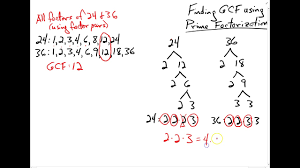 All factors of 24 + 36
(using factor pairs)
24: 1, 2, 3, 4, 6, 8, 12, 24
36: 1, 2, 3, 4, 6, 9, 12, 18, 36
GCF: 12
Finding GCF using
Prime Factorization
24 36
2 12 2 18
2 6 2 9
2 3 3 3
24: 2 2 2 3 36: 2 2 3 3
2 · 2 · 3 = 4 ·